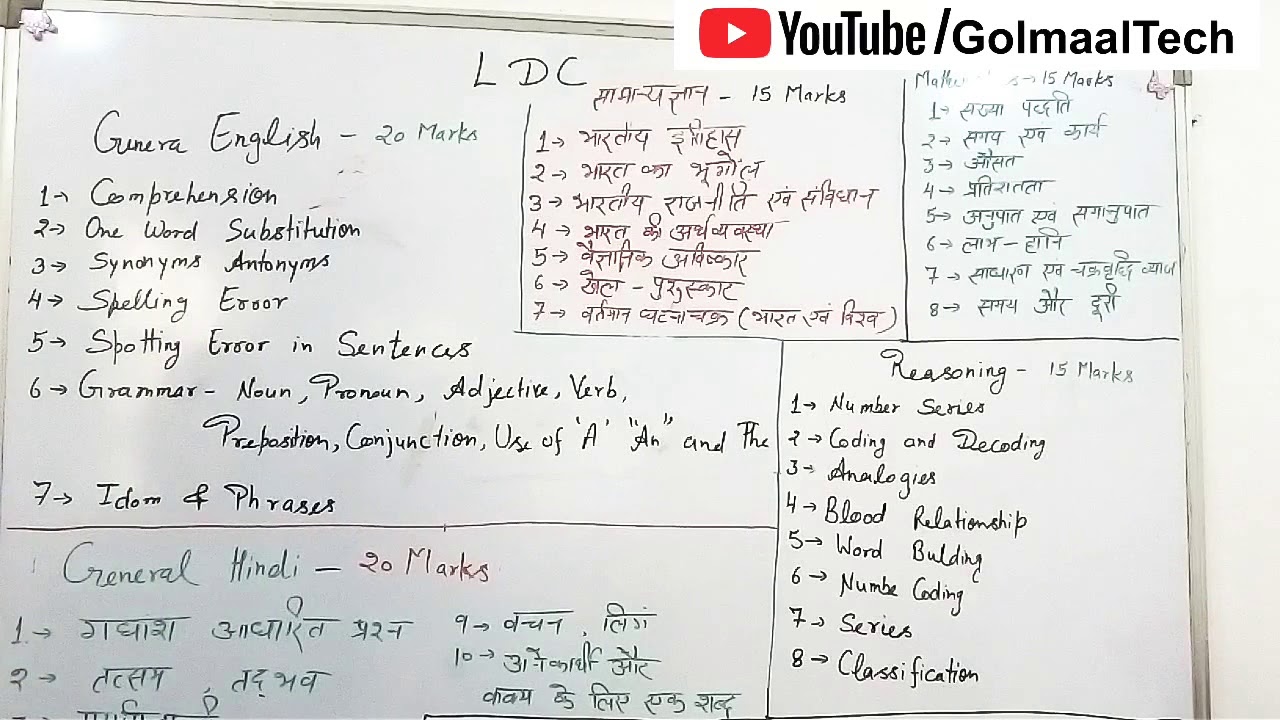 YouTube /GolmaalTech
LDC
Genera English - 20 Marks
1→ Comprehension
2→ One Word Substitution
3→ Synonyms Antonyms
4→ Spelling Error
5→ Spotting Error in Sentences
6→ Grammar - Noun, Pronoun, Adjective, Verb,
Preposition, Conjunction, Use of 'A' "An" and The
7→ Idom & Phrases
सामान्य ज्ञान - 15 Marks
1→ भारतीय इतिहास
2→ भारत का भूगोल
3→ भारतीय राजनीति एवं संविधान
4→ भारत की अर्थव्यवस्था
5→ वैज्ञानिक अविष्कार
6→ खेल - पुरुस्कार
7→ वर्तमान घटनाचक्र (भारत एवं विश्व)
15 Marks
1→ सख्या पद्धति
2→ समय एवं कार्य
3→ औसत
4→ प्रतिशतता
5→ अनुपात एवं समानुपात
6→ लाभ - हानि
7→ साधारण एवं चक्रवृद्धि व्याज
8→ समय और दूरी
Reasoning - 15 Marks
1→ Number Series
2→ Coding and Decoding
3→ Analogies
4→ Blood Relationship
5→ Word Bulding
6→ Numbe Coding
7→ Series
8→ Classification
General Hindi - 20 Marks
1→ गधांश आधारित प्रश्न
२→ तत्सम, तद्भव
९→ वचन, लिगं
10→ अनेकार्थी और
वाक्य के लिए एक शब्द